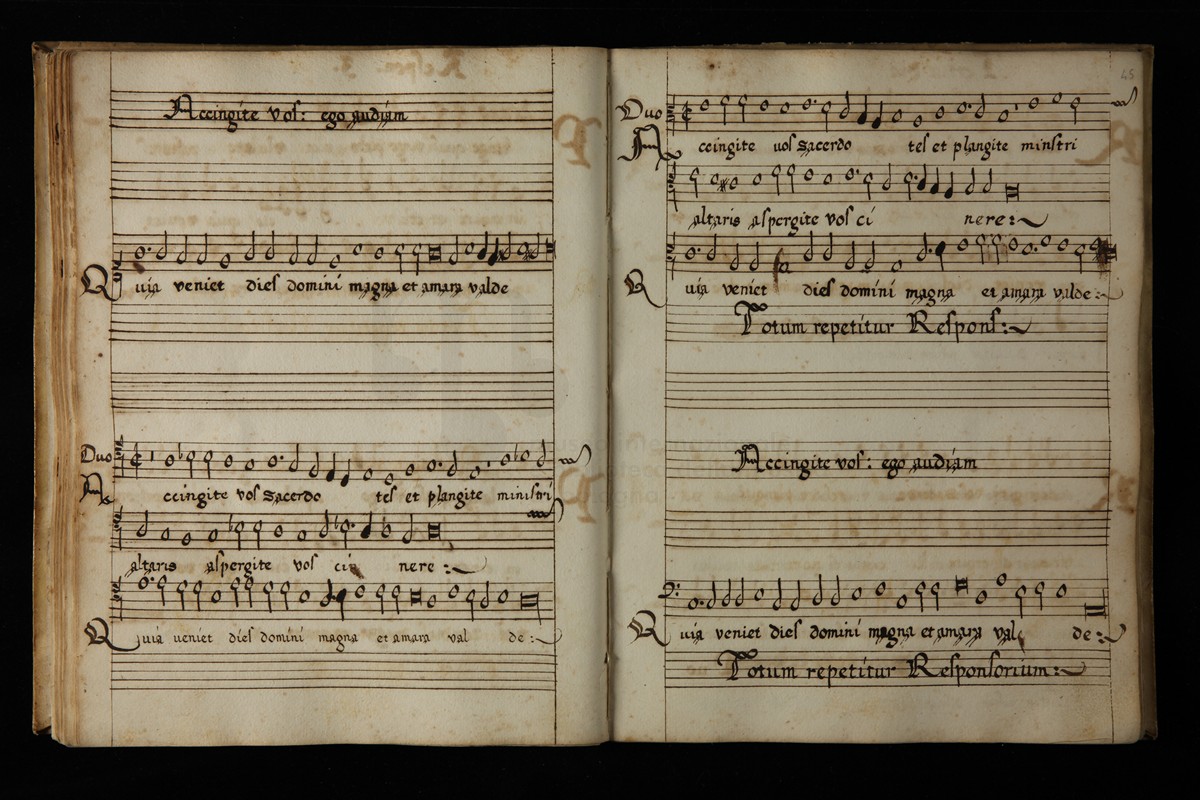 Accingite vos: ego audiam
Quia veniet dies domini magna et amara valde
Duo
Accingite vos sacerdo tes et plangite ministri
altaris aspergite vos ci nere:
Quia veniet dies domini magna et amara val de:
45
Duo
Accingite vos sacerdo tes et plangite minstri
altaris aspergite vos ci nere:
Quia veniet dies domini magna et amara valde:
Totum repetitur Respons:
Accingite vos: ego audiam
Quia veniet dies domini magna et amara val de:
Totum repetitur Responsorium: